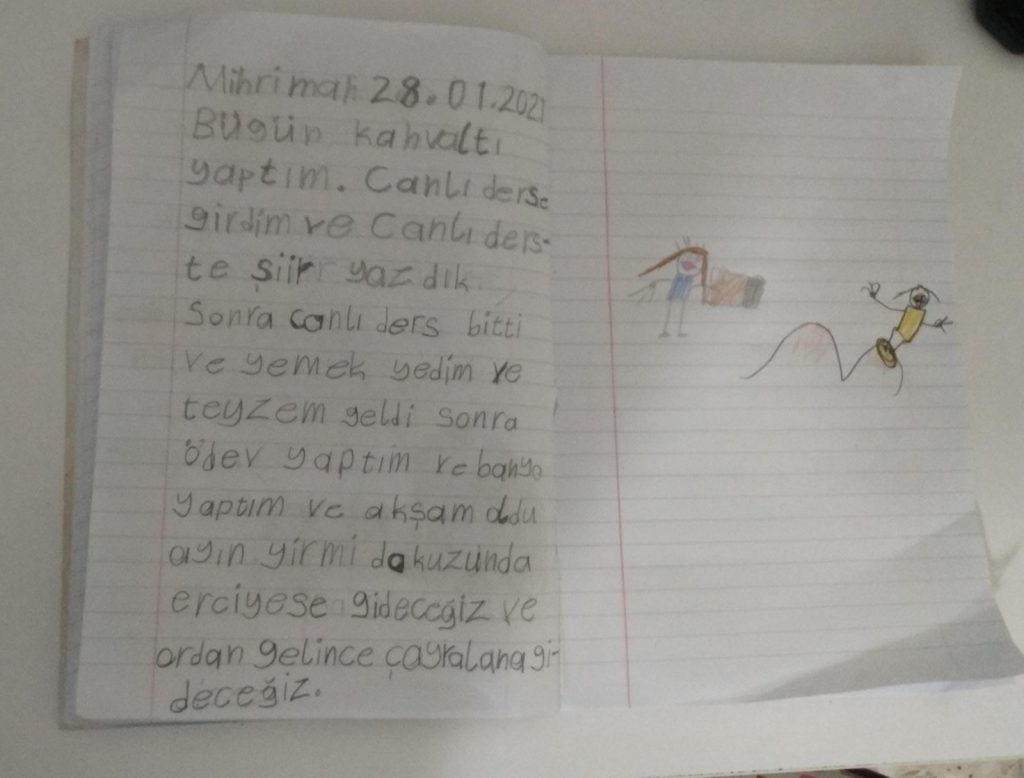 Mihrimah 28.01.2021
Bugün kahvaltı
yaptım. Canlı derse
girdim ve Canlı ders-
te şiir yazdık
Sonra canlı ders bitti
ve yemek yedim ve
teyzem geldi sonra
ödev yaptım ve banyo
yaptım ve akşam oldu
ayın yirmi dakuzunda
erciyese gideceğiz ve
ordan gelince çayralana gi-
deceğiz.